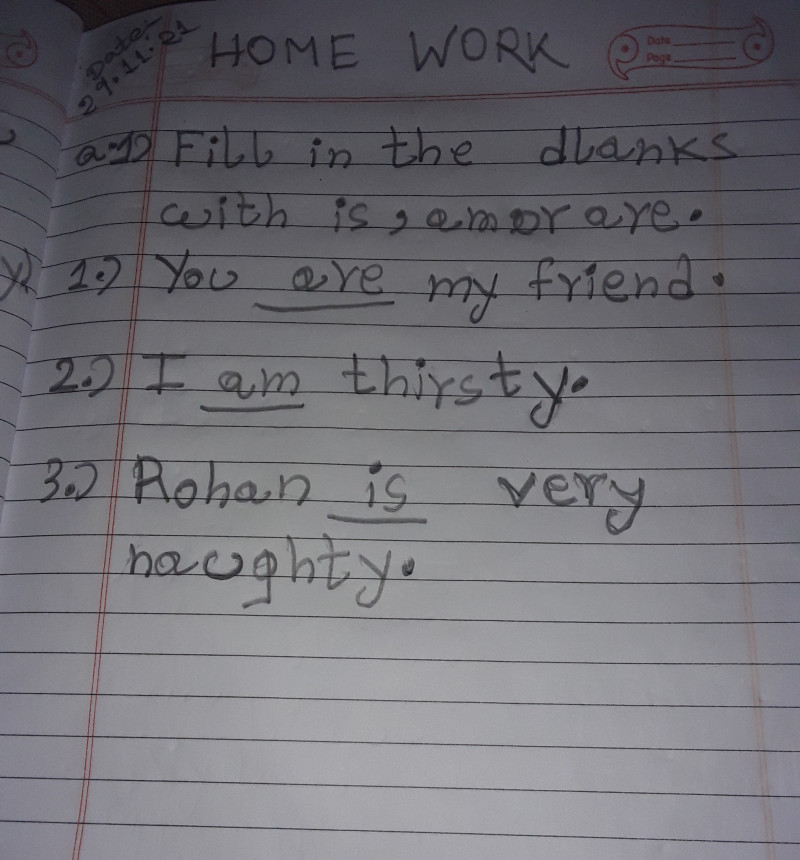 Date:-
29.11.21
HOME WORK
Date
Page
Q.1) Fill in the dlanks
with is, am or are.
1.) You are my friend.
2.) I am thirsty.
3.) Rohan is very
naughty.